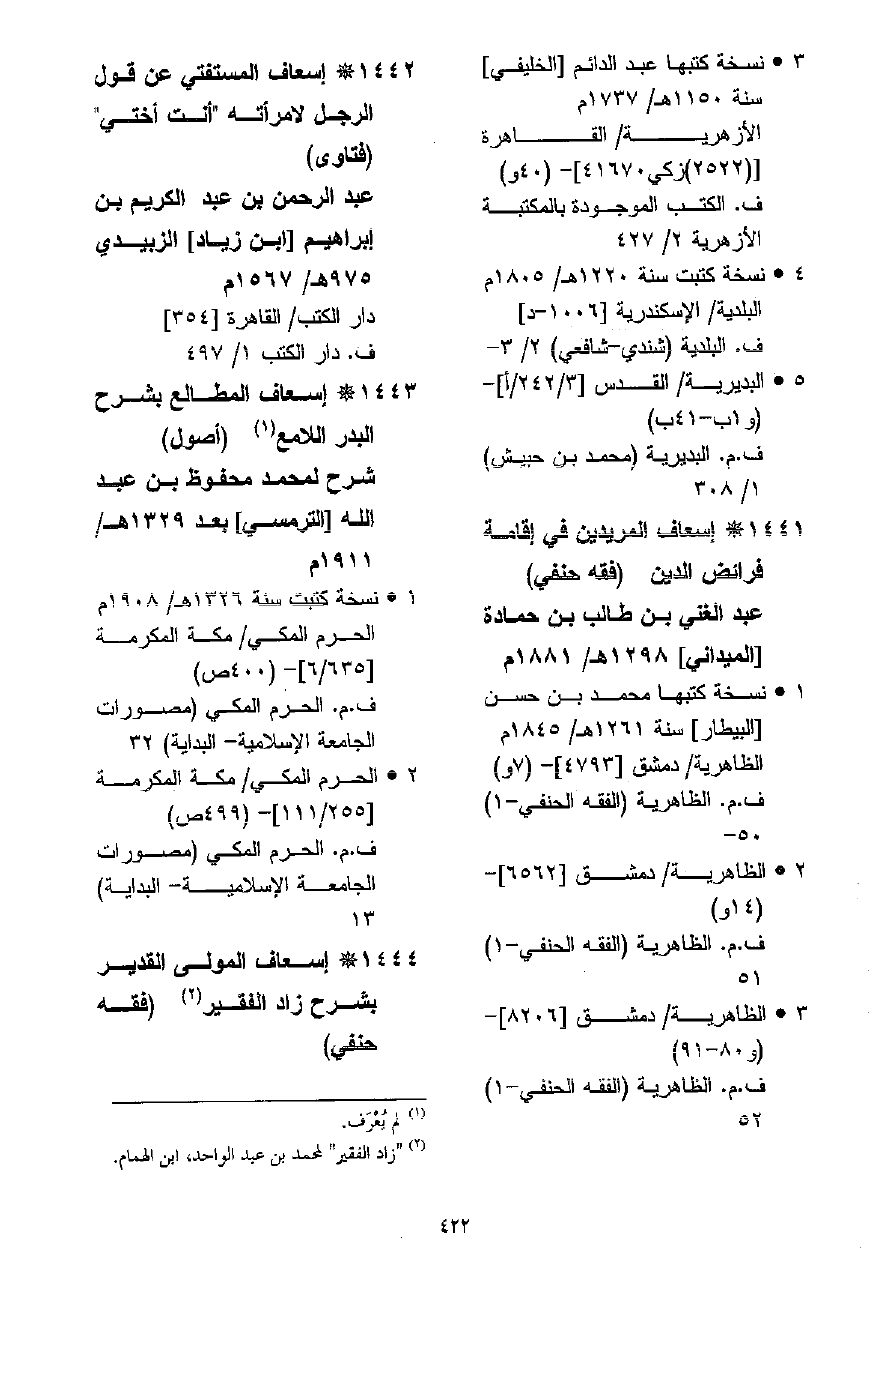 ٣ • نسخة كتبها عبد الدائم [الخليفي]
سنة ١١٥٠هـ/ ١٧٣٧م
الأزهرية/ القاهرة
[(٢٥٢٢)زكي٤١٦٧٠]- (٤٠و)
ف. الكتب الموجودة بالمكتبة
الأزهرية ٢/ ٤٢٧
٤ • نسخة كتبت سنة ١٢٢٠هـ/ ١٨٠٥م
البلدية/ الإسكندرية [١٠٠٦-د]
ف. البلدية (شندي-شافعي) ٢/ ٣-
٥ • البديرية/ القدس [٢٤٢/٣/أ]-
(و١ب-٤١ب)
ف.م. البديرية (محمد بن حبيش)
١/ ٣٠٨
١٤٤١ * إسعاف المريدين في إقامة
فرائض الدين (فقه حنفي)
عبد الغني بن طالب بن حمادة
[الميداني] ١٢٩٨هـ/ ١٨٨١م
١ • نسخة كتبها محمد بن حسن
[البيطار] سنة ١٢٦١هـ/ ١٨٤٥م
الظاهرية/ دمشق [٤٧٩٣]- (٧و)
ف.م. الظاهرية (الفقه الحنفي-١)
٥٠-
٢ • الظاهرية/ دمشق [٦٥٦٢]-
(١٤و)
ف.م. الظاهرية (الفقه الحنفي-١)
٥١
٣ • الظاهرية/ دمشق [٨٢٠٦]-
(و٨٠-٩١)
ف.م. الظاهرية (الفقه الحنفي-١)
٥٢
١٤٤٢ * إسعاف المستفتي عن قول
الرجل لامرأته "أنت أختي"
(فتاوى)
عبد الرحمن بن عبد الكريم بن
إبراهيم [ابن زياد] الزبيدي
٩٧٥هـ/ ١٥٦٧م
دار الكتب/ القاهرة [٣٥٤]
ف. دار الكتب ١/ ٤٩٧
١٤٤٣ * إسعاف المطالع بشرح
البدر اللامع(١) (أصول)
شرح لمحمد محفوظ بن عبد
الله [الترمسي] بعد ١٣٢٩هـ/
١٩١١م
١ • نسخة كتبت سنة ١٣٢٦هـ/ ١٩٠٨م
الحرم المكي/ مكة المكرمة
[٦/٦٣٥]- (٤٠٠ص)
ف.م. الحرم المكي (مصورات
الجامعة الإسلامية- البداية) ٣٢
٢ • الحرم المكي/ مكة المكرمة
[١١١/٢٥٥]- (٤٩٩ص)
ف.م. الحرم المكي (مصورات
الجامعة الإسلامية- البداية)
١٣
١٤٤٤ * إسعاف المولى القدير
بشرح زاد الفقير(٢) (فقه
حنفي)
(١) لم يُعْرَف.
(٢) "زاد الفقير" لمحمد بن عبد الواحد، ابن الهمام.
٤٢٢